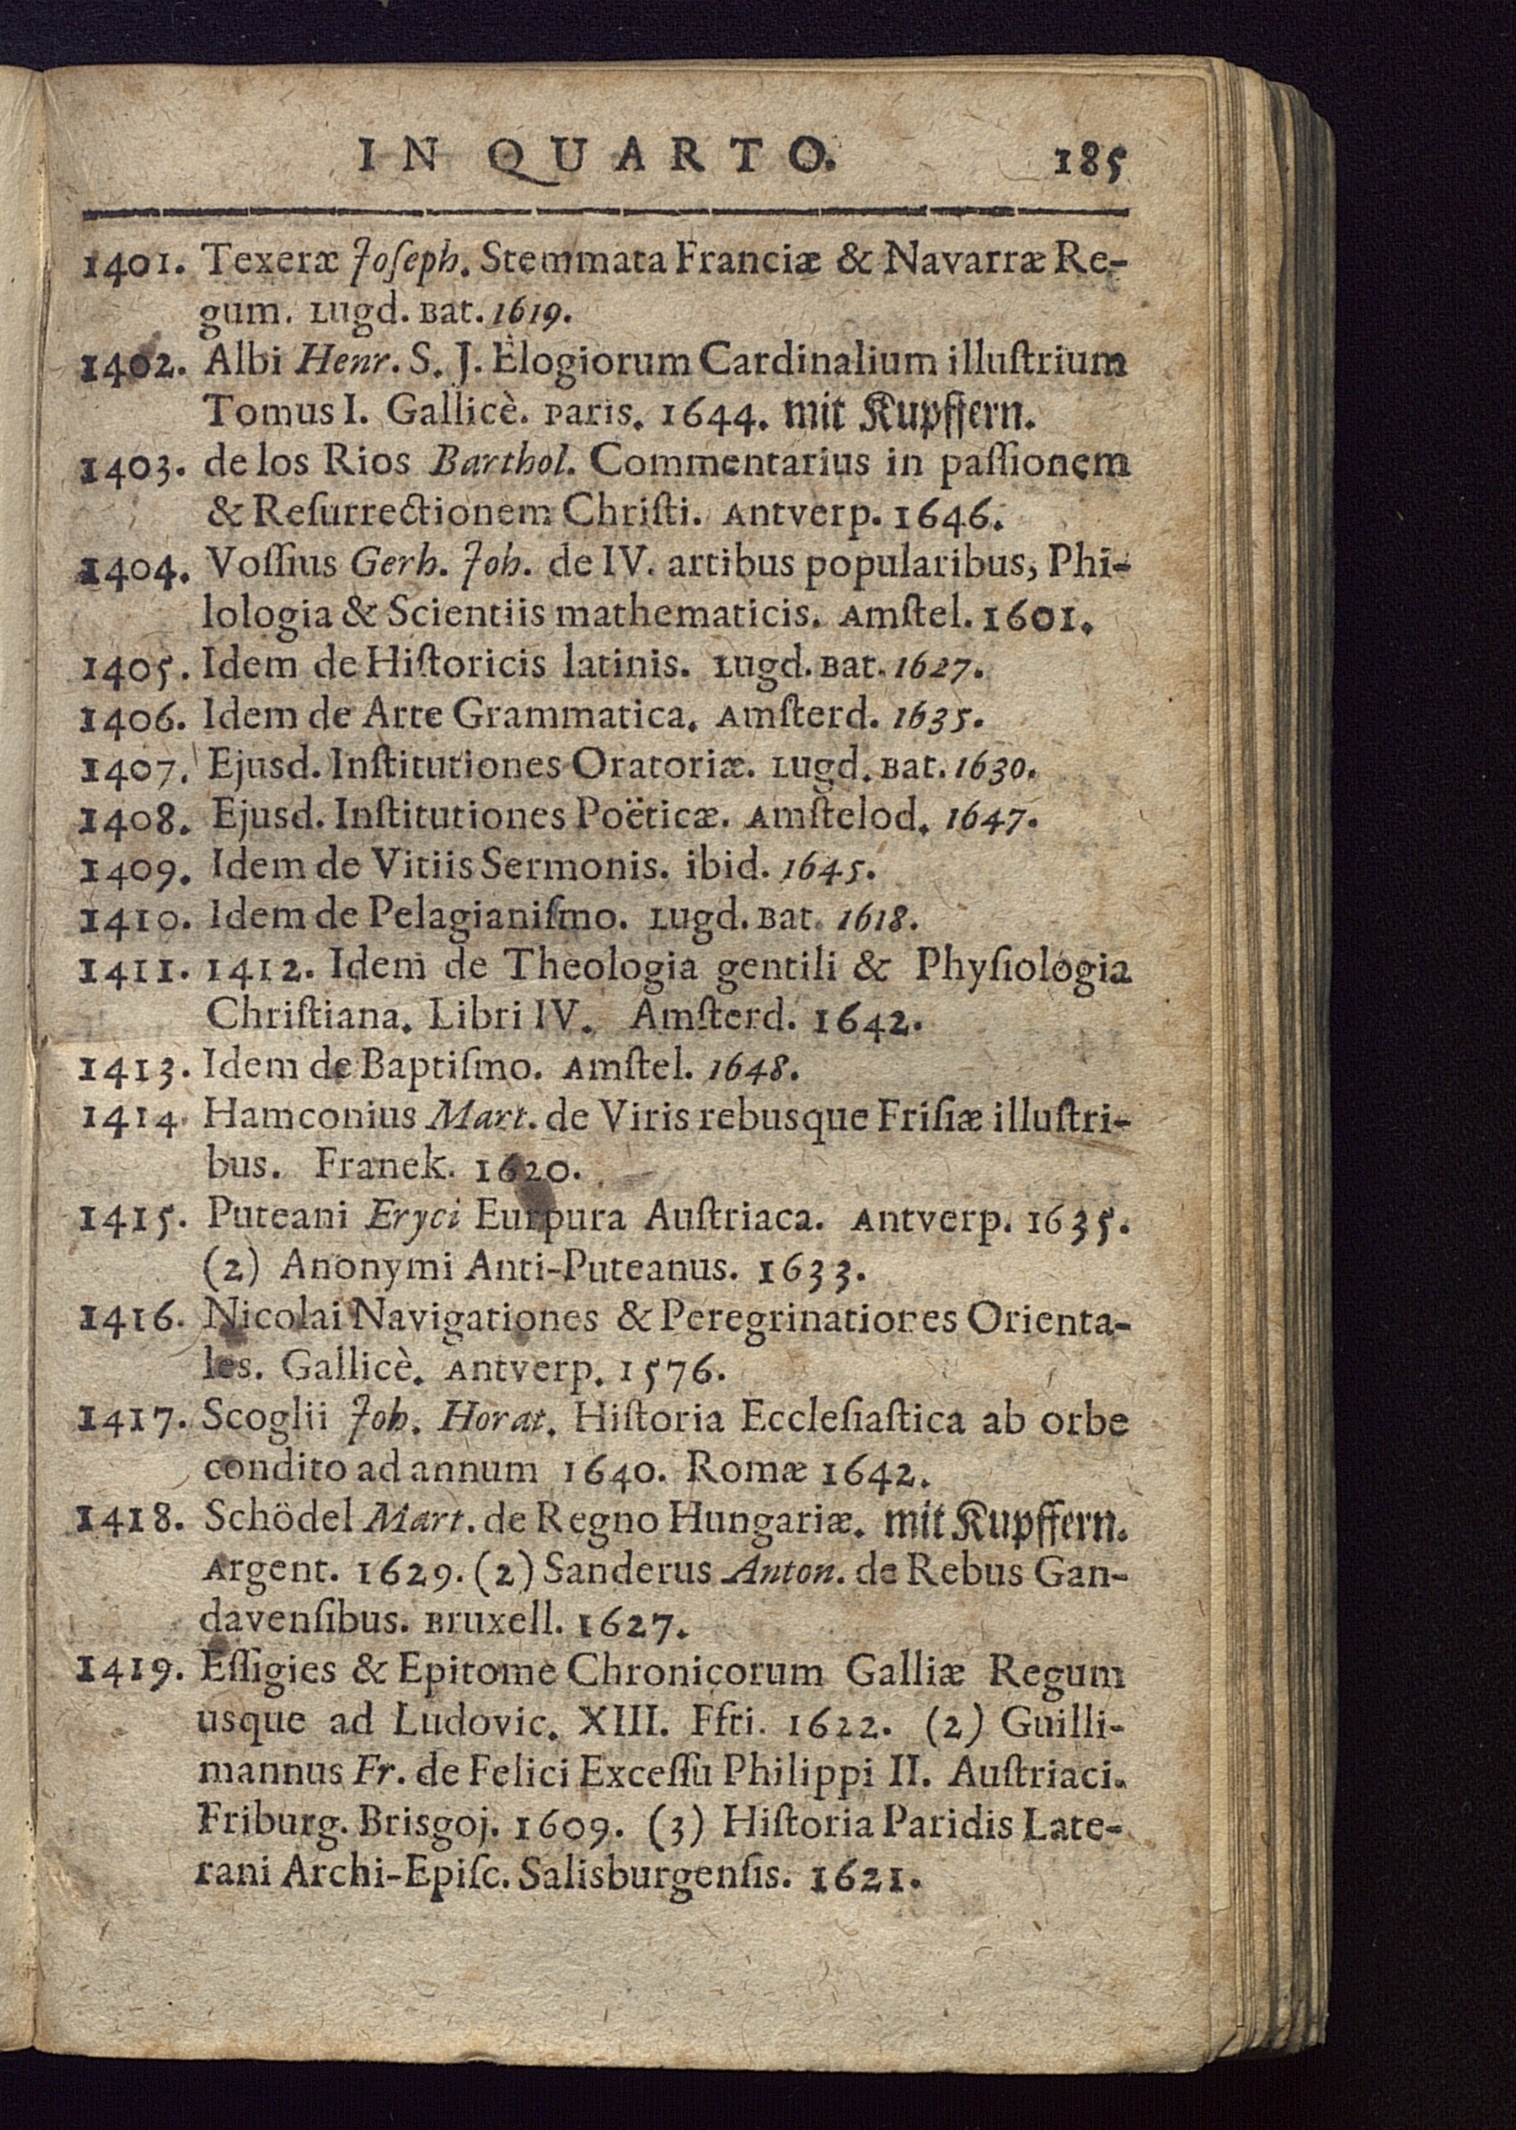 IN QUARTO. 185
1401. Texeræ Joſeph. Stemmata Franciæ & Navarræ Re-
gum. Lugd. Bat. 1619.
1402. Albi Henr. S. J. Elogiorum Cardinalium illuſtrium
Tomus I. Gallicè. Paris. 1644. mit Kupffern.
1403. de los Rios Barthol. Commentarius in paſſionem
& Reſurrectionem Chriſti. Antverp. 1646.
1404. Voſſius Gerh. Joh. de IV. artibus popularibus, Phi-
lologia & Scientiis mathematicis. Amſtel. 1601.
1405. Idem de Hiſtoricis latinis. Lugd. Bat. 1627.
1406. Idem de Arte Grammatica. Amſterd. 1635.
1407. Ejusd. Inſtitutiones Oratoriæ. Lugd. Bat. 1630.
1408. Ejusd. Inſtitutiones Poëticæ. Amſtelod. 1647.
1409. Idem de Vitiis Sermonis. ibid. 1645.
1410. Idem de Pelagianiſmo. Lugd. Bat. 1618.
1411. 1412. Idem de Theologia gentili & Phyſiologia
Chriſtiana. Libri IV. Amſterd. 1642.
1413. Idem de Baptiſmo. Amſtel. 1648.
1414. Hamconius Mart. de Viris rebusque Friſiæ illuſtri-
bus. Franek. 1620.
1415. Puteani Eryci Eurpura Auſtriaca. Antverp. 1635.
(2) Anonymi Anti-Puteanus. 1633.
1416. Nicolai Navigationes & Peregrinationes Orienta-
les. Gallicè. Antverp. 1576.
1417. Scoglii Joh. Horat. Hiſtoria Eccleſiaſtica ab orbe
condito ad annum 1640. Romæ 1642.
1418. Schödel Mart. de Regno Hungariæ. mit Kupffern.
Argent. 1629. (2) Sanderus Anton. de Rebus Gan-
davenſibus. Bruxell. 1627.
1419. Eſſigies & Epitome Chronicorum Galliæ Regum
usque ad Ludovic. XIII. Ffti. 1622. (2) Guilli-
mannus Fr. de Felici Exceſſu Philippi II. Auſtriaci.
Friburg. Brisgoj. 1609. (3) Hiſtoria Paridis Late-
rani Archi-Epiſc. Salisburgenſis. 1621.